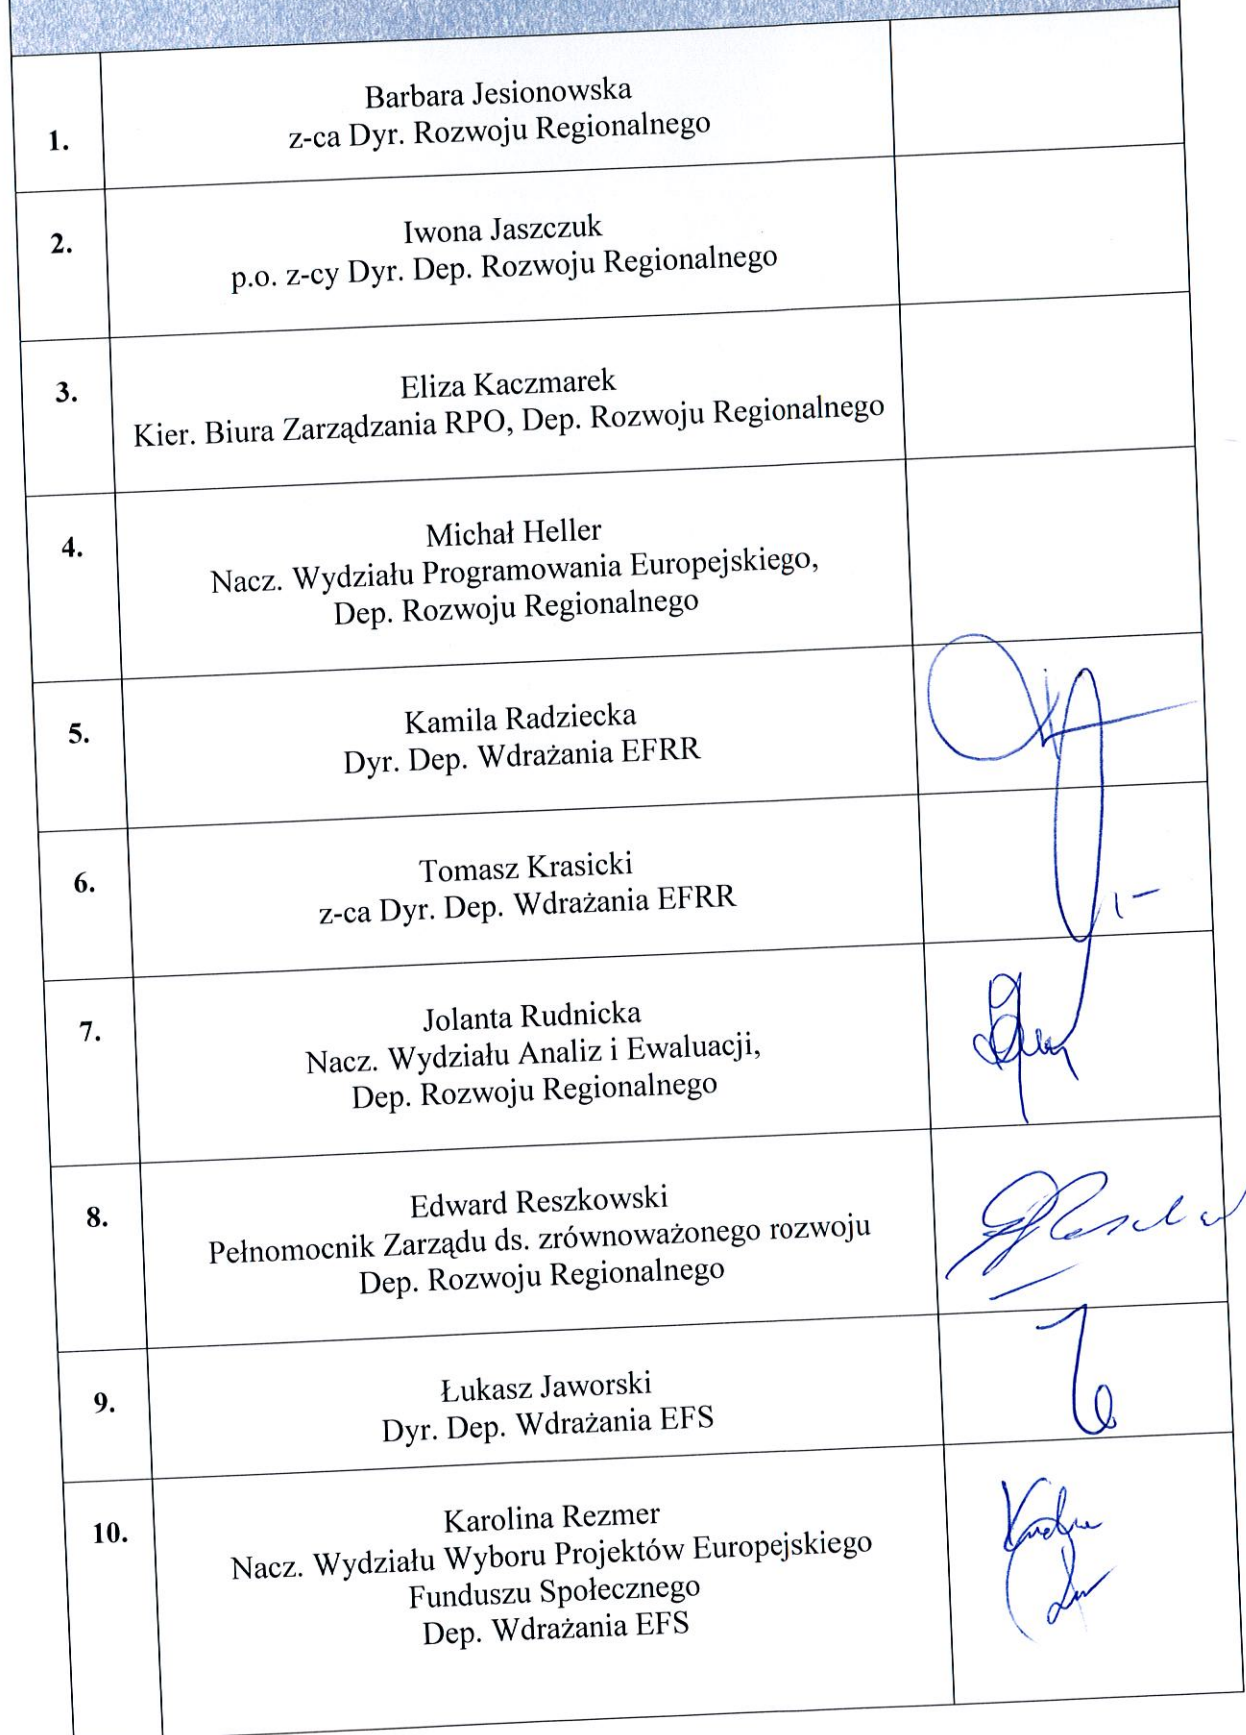 1.
Barbara Jesionowska
z-ca Dyr. Rozwoju Regionalnego
2.
Iwona Jaszczuk
p.o. z-cy Dyr. Dep. Rozwoju Regionalnego
3.
Eliza Kaczmarek
Kier. Biura Zarządzania RPO, Dep. Rozwoju Regionalnego
4.
Michał Heller
Nacz. Wydziału Programowania Europejskiego,
Dep. Rozwoju Regionalnego
5.
Kamila Radziecka
Dyr. Dep. Wdrażania EFRR
6.
Tomasz Krasicki
z-ca Dyr. Dep. Wdrażania EFRR
7.
Jolanta Rudnicka
Nacz. Wydziału Analiz i Ewaluacji,
Dep. Rozwoju Regionalnego
8.
Edward Reszkowski
Pełnomocnik Zarządu ds. zrównoważonego rozwoju
Dep. Rozwoju Regionalnego
9.
Łukasz Jaworski
Dyr. Dep. Wdrażania EFS
10.
Karolina Rezmer
Nacz. Wydziału Wyboru Projektów Europejskiego
Funduszu Społecznego
Dep. Wdrażania EFS